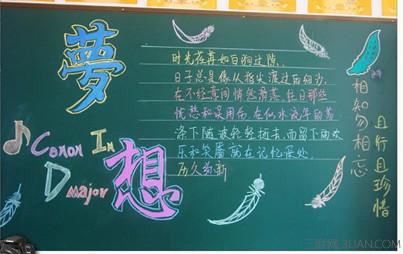 夢想
Canon In
D major
时光荏苒如白驹过隙,
日子总是像从指尖渡过的细沙,
在不经意间悄然滑落。往日那些
忧愁和误用伤,在似水流年的荡
涤下随波轻轻逝去,而留下的欢
乐和笑靥就在记忆深处,
历久弥新
相知勿相忘
且行且珍惜
三联网 3LIAN.COM